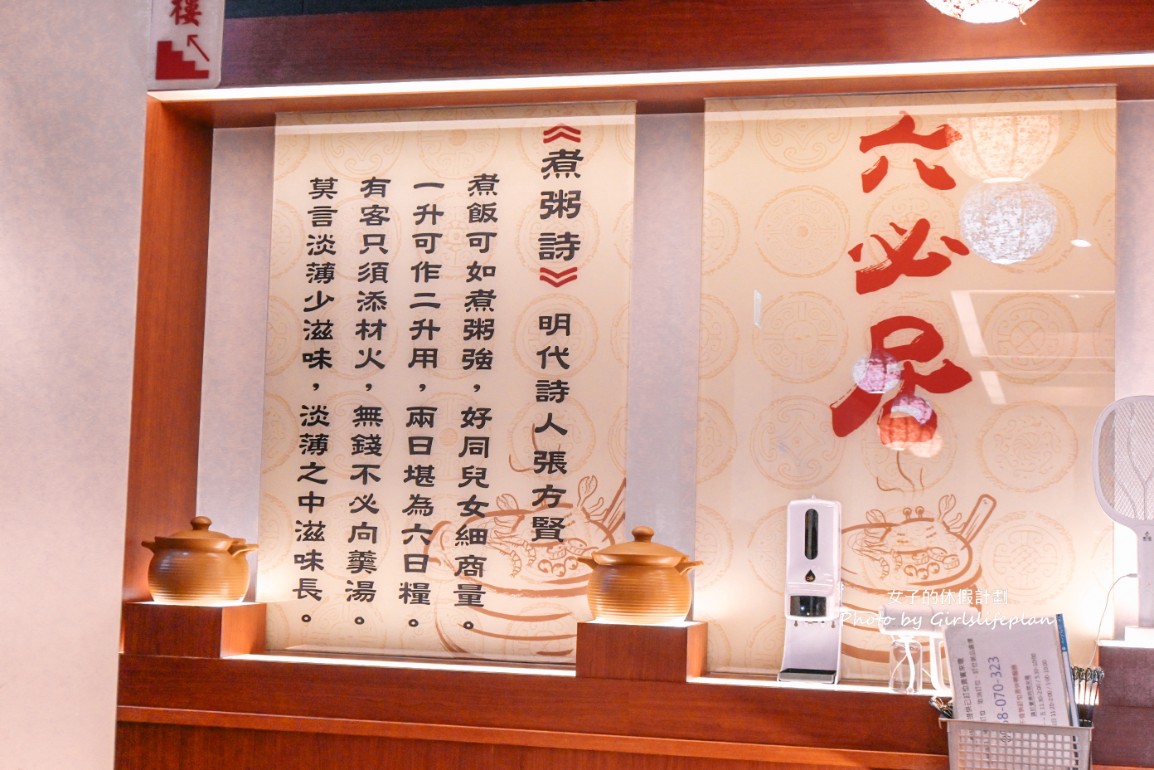 樓
六必居
《煮粥詩》 明代詩人張方賢
煮飯可如煮粥強，好同兒女細商量。
一升可作二升用，兩日堪為六日糧。
有客只須添材火，無錢不必向羹湯。
莫言淡薄少滋味，淡薄之中滋味長。
女子的休假計劃
Photo by Girlslifeplan
8-070-323